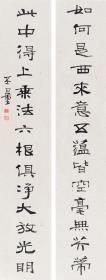 如何是西來意五蘊皆空毫無芥蒂
此中得上乘法六根俱淨大放光明